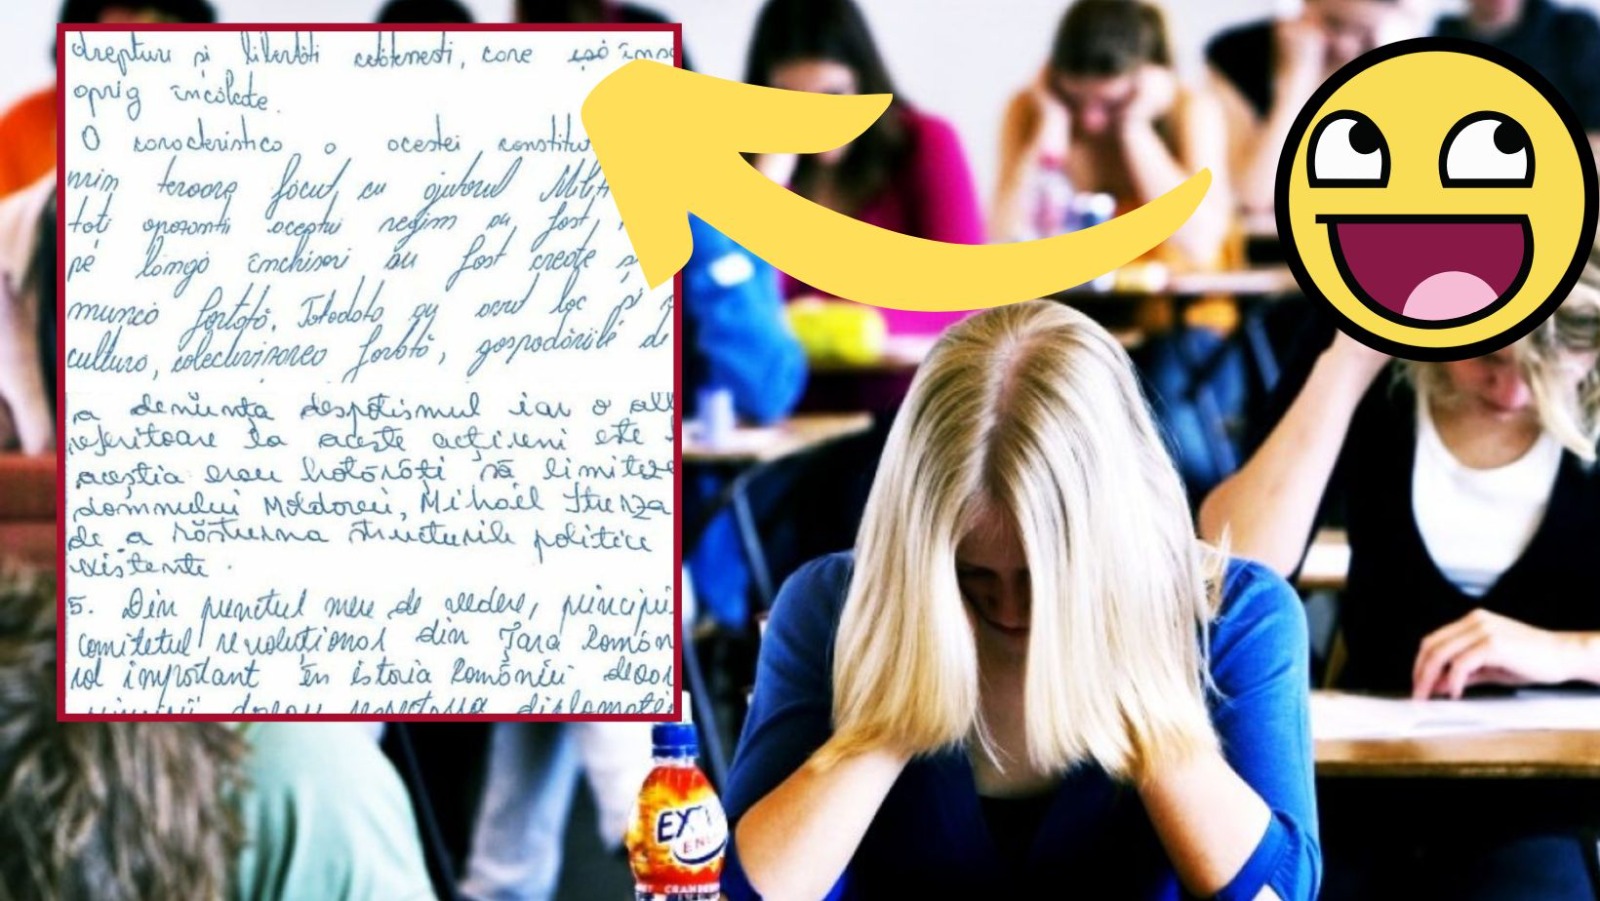 drepturi și libertăți cetățenești, care
aprig încălcate.
O caracteristica a acestei
teroare făcut cu ajutorul
toți oponenții acestui regim au fost
pe langă închisori au fost create
muncă forțată. Totodată au avut loc și
cultura, colectivizarea forțată, gospodăriile de
a denunța despotismul iar o
referitoare la aceste acțiuni este
aceștia erau hotărâți să limiteze
domnului Moldovei, Mihail Sturza
de a răsturna structurile politice
existente.
5. Din punctul meu de vedere,
comitetul revoluționar din Țara
rol important în istoria României
EXT
EN
CRANBER